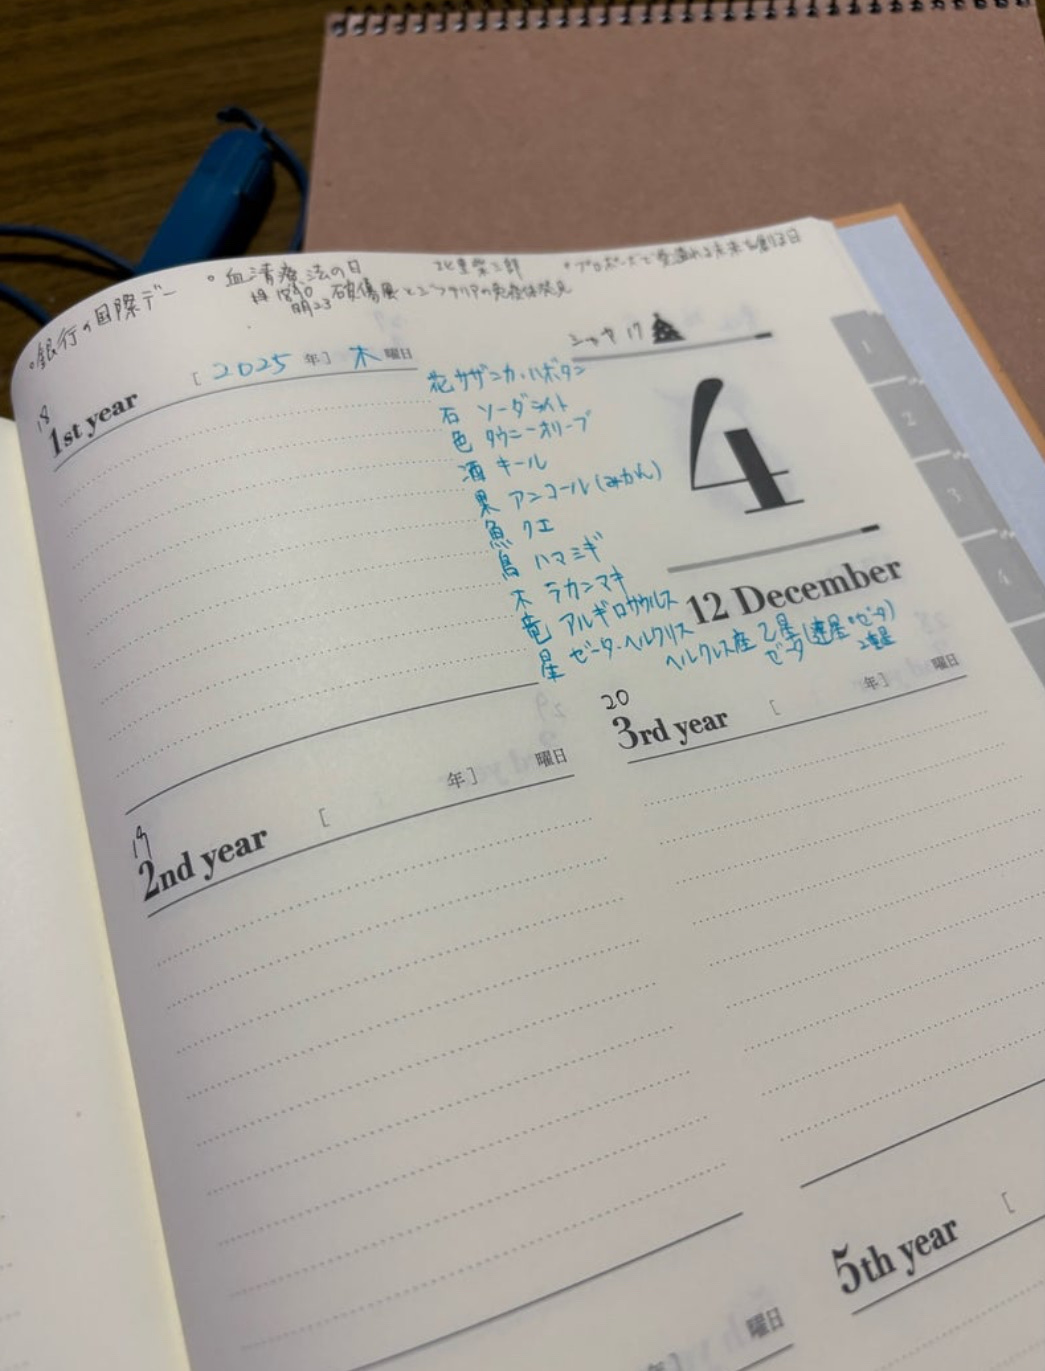 ・銀行の国際デー
・血清療法の日 北里柴三郎
1890 破傷風とジフテリアの免疫体発見
明23
・プロポーズで愛溢れる未来を創る日
[2025年] 木曜日
18
1st year
花 サザンカ・ハボタン
石 ソーダライト
色 タウニーオリーブ
酒 キール
果 アンコール(みかん)
魚 クエ
鳥 ハマシギ
木 ラカンマキ
竜 アルギロサウルス
星 ゼータ・ヘルクリス
ヘルクレス座 ζ星(連星・ゼータ)
ゼータ 2重星
17
4
12 December
19
2nd year [ 年] 曜日
20
3rd year [ 年] 曜日
年[ 曜日
5th year [
1
2
3
4